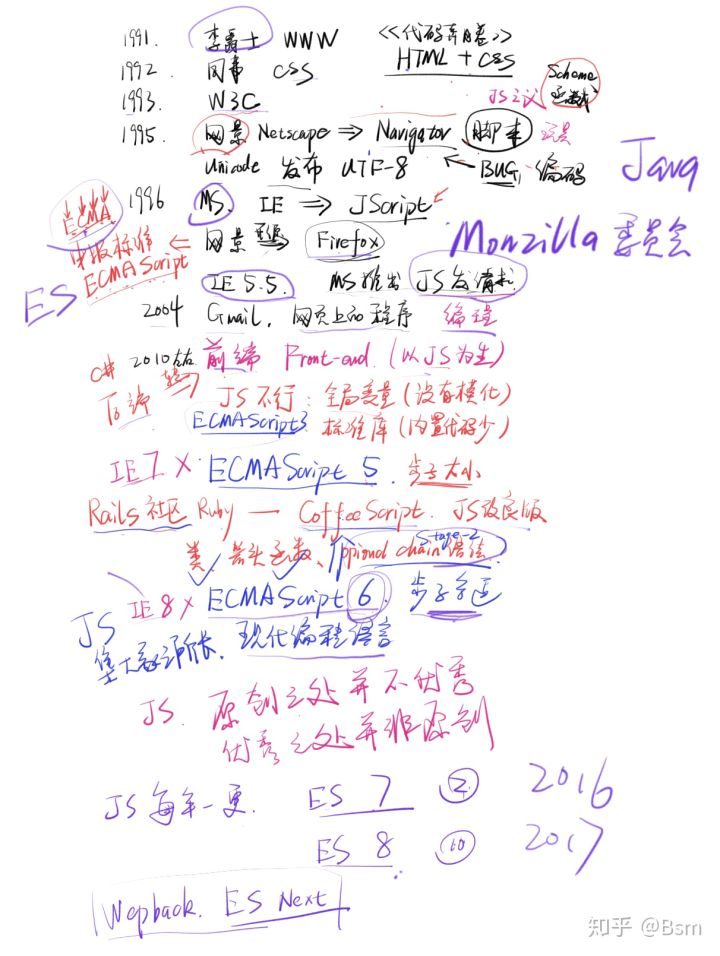 1991. 李爵士 WWW 《代码奔腾》
HTML + CSS
1992. 同事 CSS
Scheme
1993. W3C
JS之父 函数
1995. 网景 Netscape ⇒ Navigator 脚本
Unicode 发布 UTF-8 ← BUG, 编码
Java
1996 MS. IE ⇒ JScript
ECMA
网景 ⇒ Firefox
Monzilla 委员会
申报标准 ECMAScript
ES
IE 5.5. MS推出 JS发请求
2004 Gmail. 网页上的程序 编程
C# 2010左右 前端 Front-end. (以JS为生)
后端 转
JS不行: 全局变量 (没有模化)
ECMAScript3 标准库 (内置代码少)
IE7 X ECMAScript 5. 步子太小
Rails社区 Ruby — CoffeeScript. JS改良版
Stage-2
类 箭头函数、Oppional chain 语法
IE8 X ECMAScript 6.
JS
集大家之所长. 现代编程语言
JS. 原创之处并不优秀
优秀之处并非原创
JS每年一更. ES 7 ② 2016
ES 8 ⑩ 2017
Wepback. ES Next
知乎 @Bsm